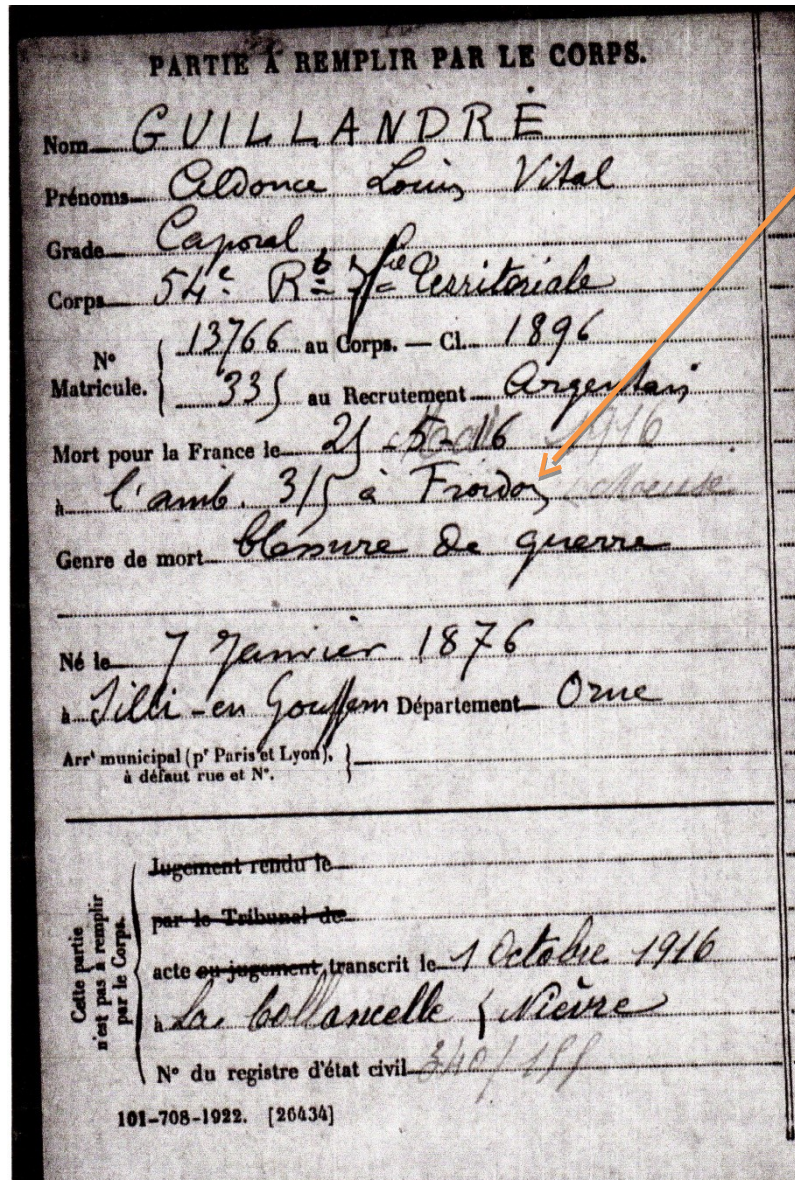 PARTIE À REMPLIR PAR LE CORPS.
Nom GUILLANDRÉ
Prénoms Aldonce Louis Vital
Grade Caporal
Corps 54e Rt d'Ie Territoriale
N° Matricule. 13766 au Corps. — Cl. 1896
335 au Recrutement Argentan
Mort pour la France le 25-5-16 1916
à l'amb. 3/5 à Froidos Meuse
Genre de mort blessure de guerre
Né le 7 Janvier 1876
à Silli-en Gouffern Département Orne
Arrt municipal (pr Paris et Lyon),
à défaut rue et N°.
Cette partie n'est pas à remplir par le Corps.
Jugement rendu le
par le Tribunal de
acte ou jugement transcrit le 1 Octobre 1916
à La Collancelle (Nièvre
N° du registre d'état civil
101-708-1922. [26434]